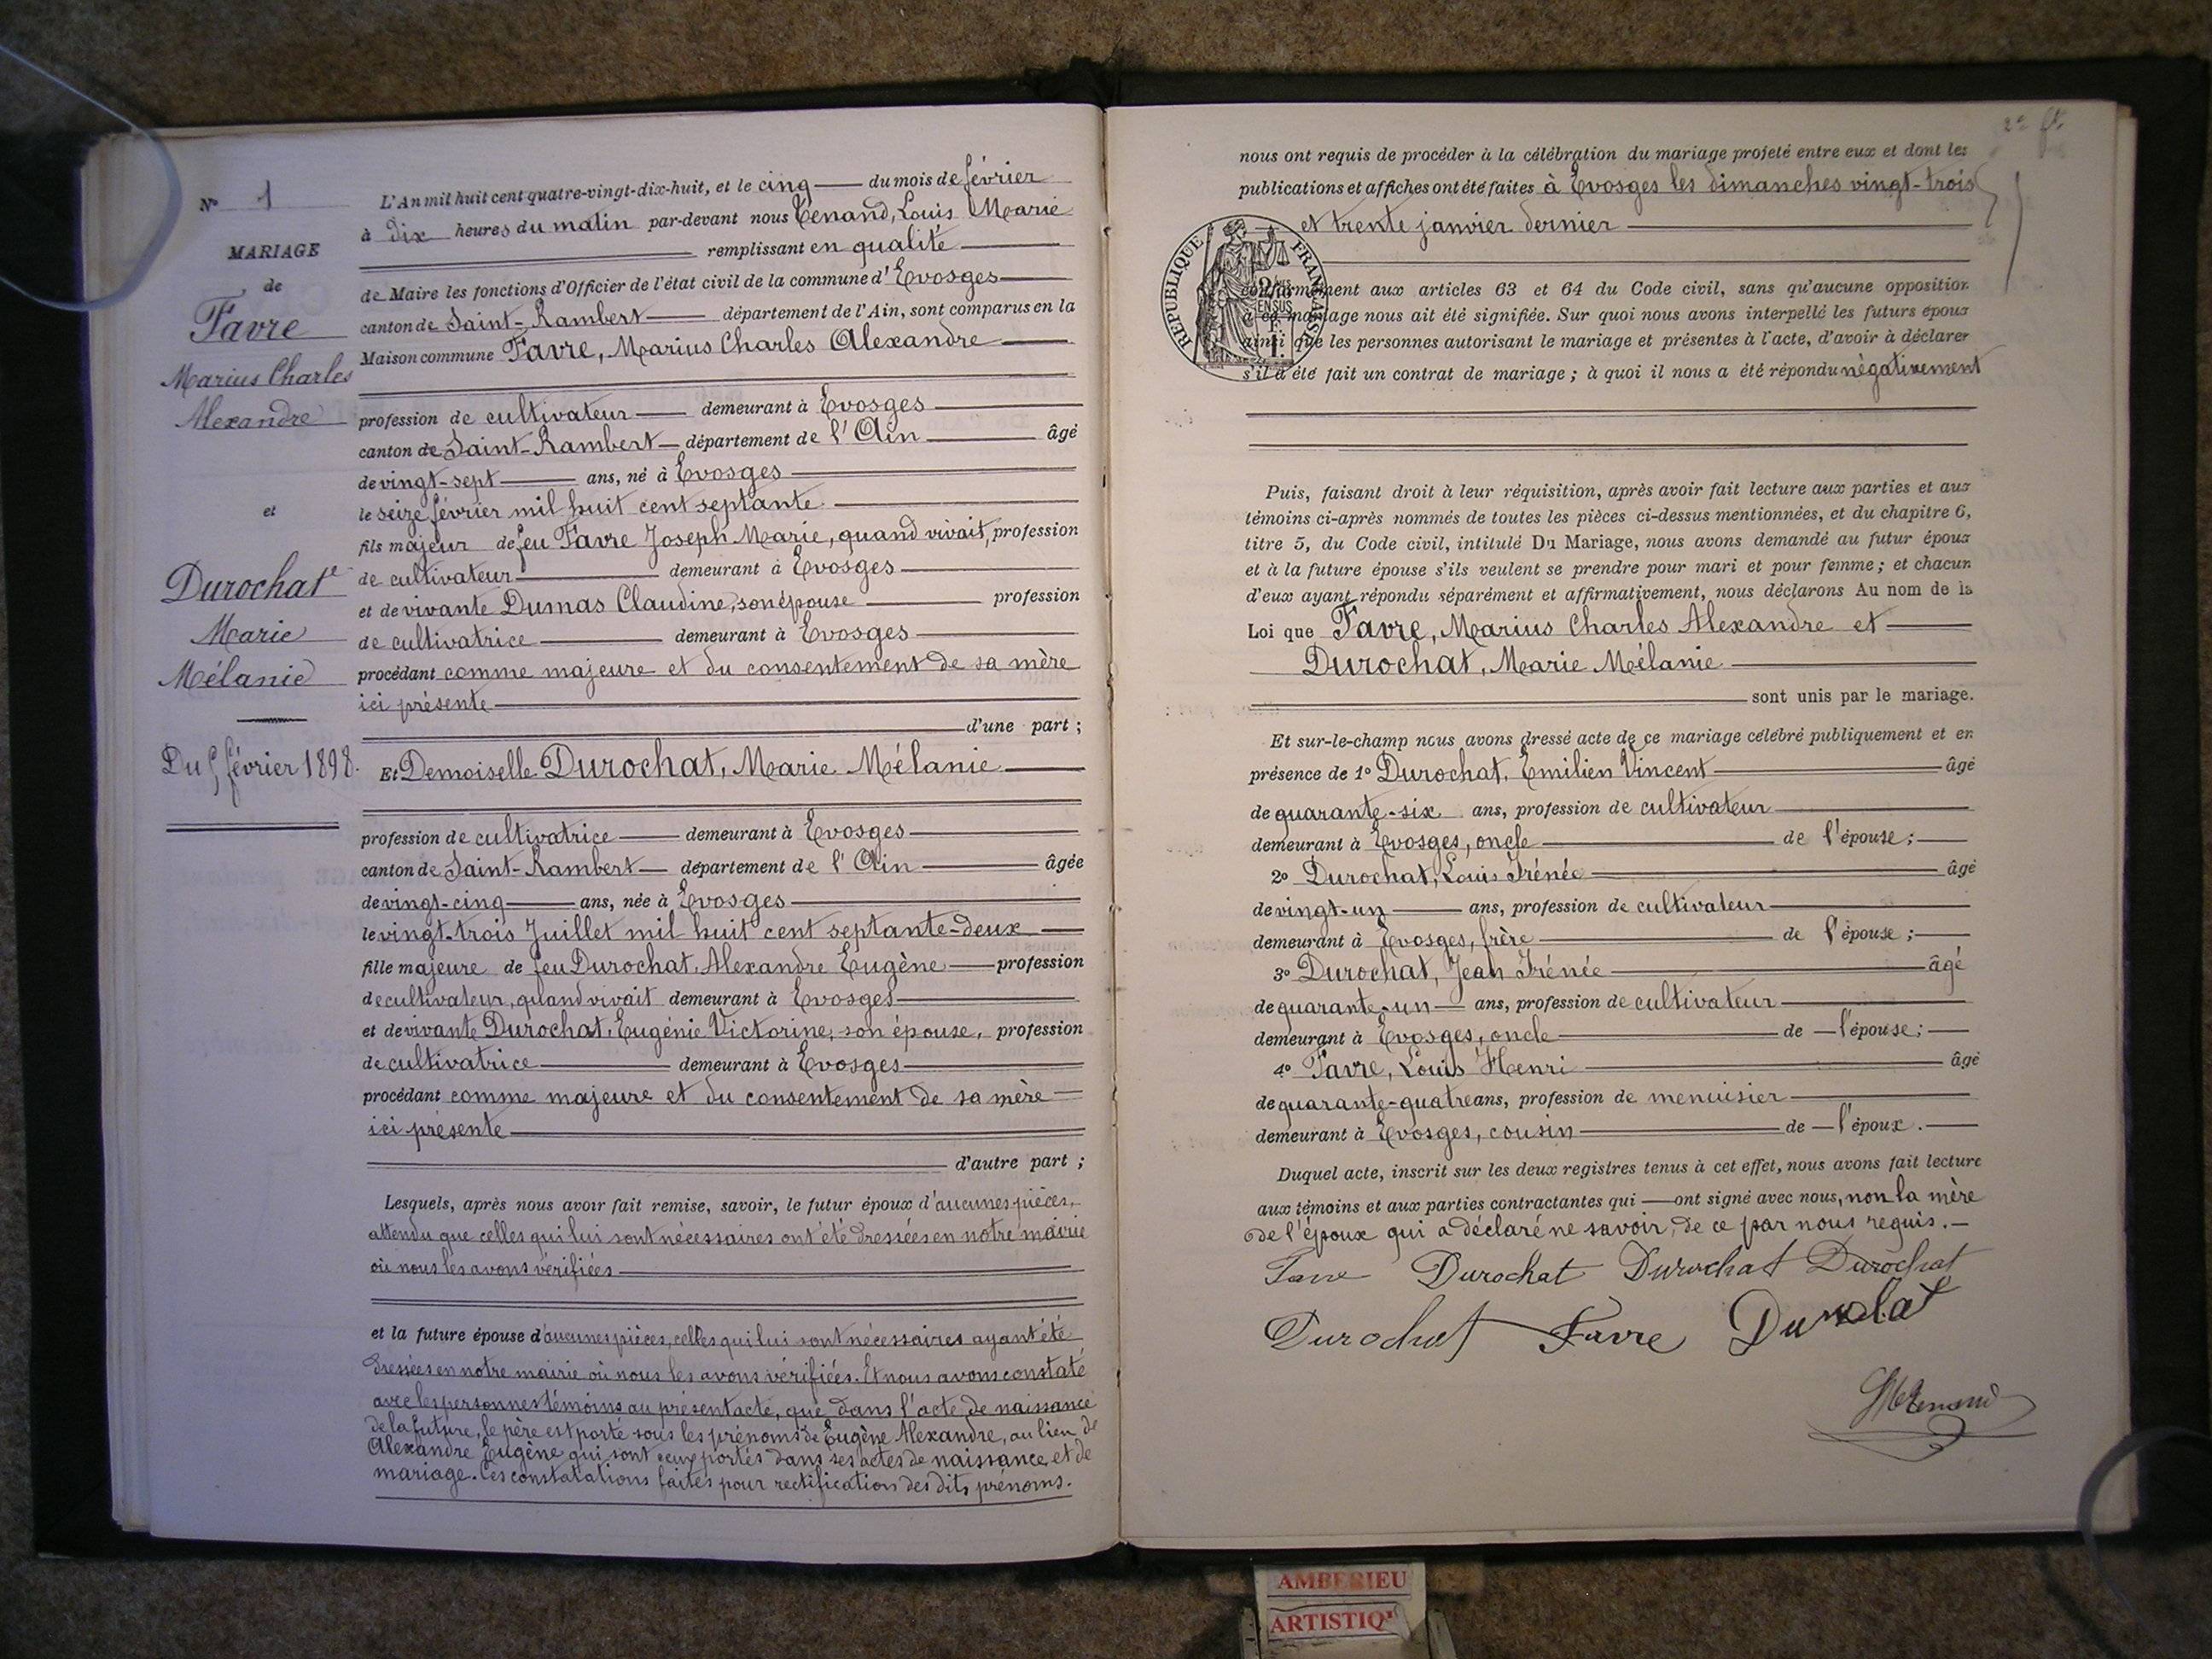 N° 1
MARIAGE
de
Favre
Marius Charles
Alexandre
et
Durochat
Marie
Mélanie
Du 5 février 1898.
L'An mil huit cent quatre-vingt-dix-huit, et le cinq du mois de février
à dix heures du matin par-devant nous Tenand, Louis Marie
remplissant en qualité
de Maire les fonctions d'Officier de l'état civil de la commune d'Evosges
canton de Saint-Rambert département de l'Ain, sont comparus en la
Maison commune Favre, Marius Charles Alexandre
profession de cultivateur demeurant à Evosges
canton de Saint-Rambert département de l'Ain âgé
de vingt-sept ans, né à Evosges
le seize février mil huit cent septante
fils majeur de feu Favre Joseph Marie, quand vivait, profession
de cultivateur demeurant à Evosges
et de vivante Dumas Claudine, son épouse profession
de cultivatrice demeurant à Evosges
procédant comme majeure et du consentement de sa mère
ici présente
d'une part ;
Et Demoiselle Durochat, Marie Mélanie
profession de cultivatrice demeurant à Evosges
canton de Saint-Rambert département de l'Ain âgée
de vingt-cinq ans, née à Evosges
le vingt-trois Juillet mil huit cent septante-deux
fille majeure de feu Durochat, Alexandre Eugène profession
de cultivateur, quand vivait demeurant à Evosges
et de vivante Durochat, Eugénie Victorine, son épouse, profession
de cultivatrice demeurant à Evosges
procédant comme majeure et du consentement de sa mère
ici présente
d'autre part ;
Lesquels, après nous avoir fait remise, savoir, le futur époux d'aucunes pièces,
attendu que celles qui lui sont nécessaires ont été dressées en notre mairie
où nous les avons vérifiées
et la future épouse d'aucunes pièces, celles qui lui sont nécessaires ayant été
dressées en notre mairie où nous les avons vérifiées. Et nous avons constaté
avec les personnes témoins au présent acte, que dans l'acte de naissance
de la future, le père est porté sous les prénoms de Eugène Alexandre, au lieu de
Alexandre Eugène qui sont ceux portés dans ses actes de naissance et de
mariage. Ces constatations faites pour rectification des dits prénoms.
nous ont requis de procéder à la célébration du mariage projeté entre eux et dont les
publications et affiches ont été faites à Evosges les dimanches vingt-trois
et trente janvier dernier
REPUBLIQUE FRANÇAISE
conformément aux articles 63 et 64 du Code civil, sans qu'aucune opposition
à ce mariage nous ait été signifiée. Sur quoi nous avons interpellé les futurs époux
ainsi que les personnes autorisant le mariage et présentes à l'acte, d'avoir à déclarer
s'il a été fait un contrat de mariage ; à quoi il nous a été répondu négativement
Puis, faisant droit à leur réquisition, après avoir fait lecture aux parties et aux
témoins ci-après nommés de toutes les pièces ci-dessus mentionnées, et du chapitre 6,
titre 5, du Code civil, intitulé Du Mariage, nous avons demandé au futur époux
et à la future épouse s'ils veulent se prendre pour mari et pour femme ; et chacun
d'eux ayant répondu séparément et affirmativement, nous déclarons Au nom de la
Loi que Favre, Marius Charles Alexandre et
Durochat, Marie Mélanie
sont unis par le mariage.
Et sur-le-champ nous avons dressé acte de ce mariage célébré publiquement et en
présence de 1° Durochat, Emilien Vincent âgé
de quarante-six ans, profession de cultivateur
demeurant à Evosges, oncle de l'épouse ;
2° Durochat, Louis Irénée âgé
de vingt-un ans, profession de cultivateur
demeurant à Evosges, frère de l'épouse ;
3° Durochat, Jean Irénée âgé
de quarante-un ans, profession de cultivateur
demeurant à Evosges, oncle de l'épouse ;
4° Favre, Louis Henri âgé
de quarante-quatre ans, profession de menuisier
demeurant à Evosges, cousin de l'époux.
Duquel acte, inscrit sur les deux registres tenus à cet effet, nous avons fait lecture
aux témoins et aux parties contractantes qui ont signé avec nous, non la mère
de l'époux qui a déclaré ne savoir, de ce par nous requis.
Favre Durochat Durochat Durochat
Durochat Favre Durochat
AMBERIEU
ARTISTIQ